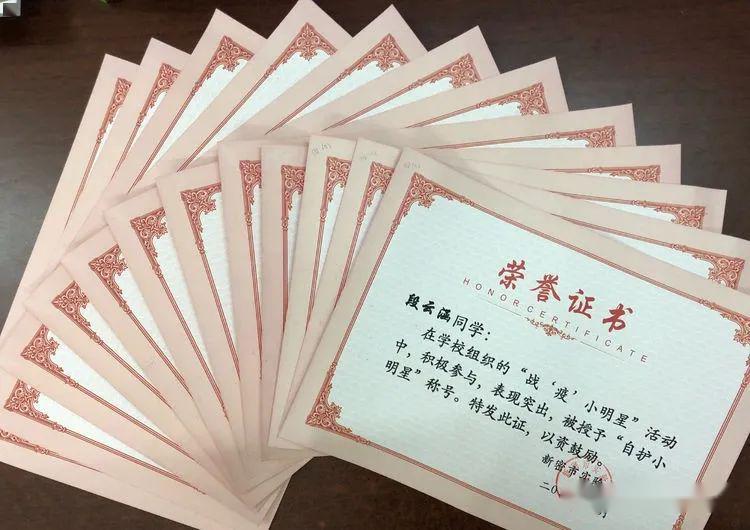 荣誉证书
HONOR CERTIFICATE
段云涵同学：
在学校组织的“战‘疫’小明星”活动
中，积极参与，表现突出，被授予“自护小
明星”称号。特发此证，以资鼓励。
新密市实验
二〇